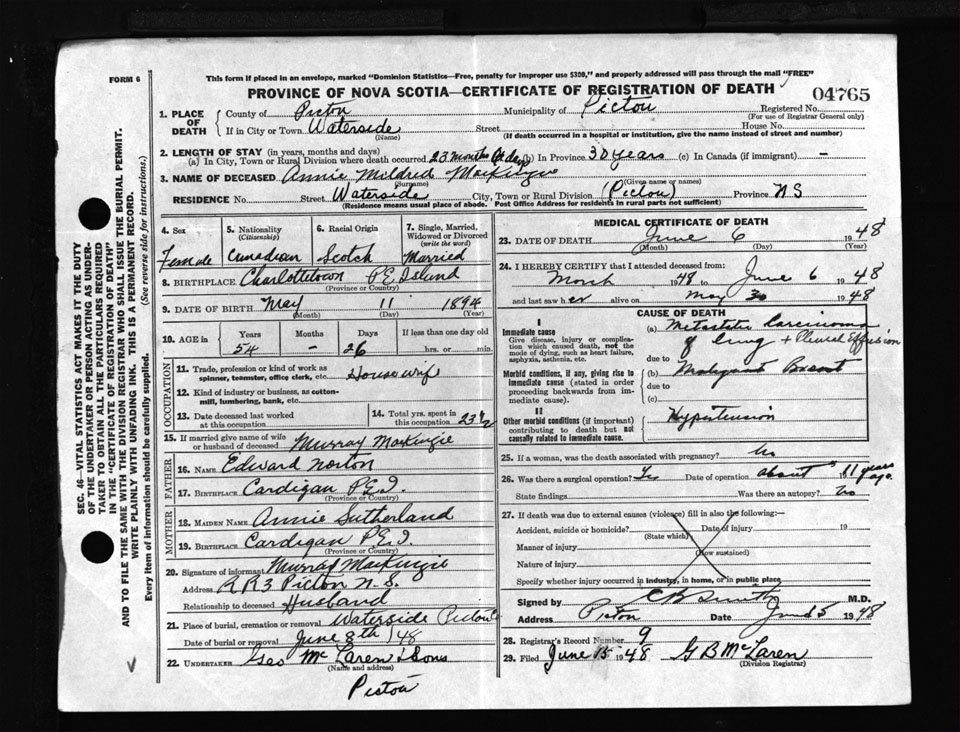 FORM 6
This form if placed in an envelope, marked "Dominion Statistics—Free, penalty for improper use $300," and properly addressed will pass through the mail "FREE"
PROVINCE OF NOVA SCOTIA—CERTIFICATE OF REGISTRATION OF DEATH
04765
1. PLACE OF DEATH
County of Pictou
Municipality of Pictou
Registered No.
(For use of Registrar General only)
If in City or Town Waterside
(Name)
Street
House No.
(If death occurred in a hospital or institution, give the name instead of street and number)
2. LENGTH OF STAY (in years, months and days)
(a) In City, Town or Rural Division where death occurred 23 months days (b) In Province 30 years (c) In Canada (if immigrant) —
3. NAME OF DECEASED Annie Mildred MacKenzie
(Surname) (Given name or names)
RESIDENCE No. Street Waterside City, Town or Rural Division (Pictou) Province N S
(Residence means usual place of abode. Post Office Address for residents in rural parts not sufficient)
4. Sex
Female
5. Nationality
(Citizenship)
Canadian
6. Racial Origin
Scotch
7. Single, Married, Widowed or Divorced
(write the word)
Married
8. BIRTHPLACE Charlottetown P E Island
(Province or Country)
9. DATE OF BIRTH May 11 1894
(Month) (Day) (Year)
10. AGE in
Years Months Days If less than one day old
54 — 26 hrs. or min.
OCCUPATION
11. Trade, profession or kind of work as spinner, teamster, office clerk, etc. Housewife
12. Kind of industry or business, as cotton-mill, lumbering, bank, etc.
13. Date deceased last worked at this occupation
14. Total yrs. spent in this occupation 23
15. If married give name of wife or husband of deceased Murray MacKenzie
FATHER
16. NAME Edward Norton
17. BIRTHPLACE Cardigan P.E.I.
(Province or Country)
MOTHER
18. MAIDEN NAME Annie Sutherland
19. BIRTHPLACE Cardigan P.E.I.
(Province or Country)
20. Signature of informant Murray MacKenzie
Address R R 3 Pictou N. S.
Relationship to deceased Husband
21. Place of burial, cremation or removal Waterside Pictou Co
Date of burial or removal June 8th /48
22. UNDERTAKER Geo McLaren & Sons
(Name and address)
Pictou
MEDICAL CERTIFICATE OF DEATH
23. DATE OF DEATH June 6 1948
(Month) (Day) (Year)
24. I HEREBY CERTIFY that I attended deceased from
March 1948 to June 6 1948
and last saw her alive on May 30 1948
CAUSE OF DEATH
I
Immediate cause
Give disease, injury or complication which caused death, not the mode of dying, such as heart failure, asphyxia, asthenia, etc.
(a) Metastatic Carcinoma
of Lung + Pleural Effusion
due to
Morbid conditions, if any, giving rise to immediate cause (stated in order proceeding backwards from immediate cause).
(b) Malignant Breast
due to
(c)
II
Other morbid conditions (if important) contributing to death but not causally related to immediate cause.
Hypertension
25. If a woman, was the death associated with pregnancy? No
26. Was there a surgical operation? Yes Date of operation about 11 years ago.
State findings Was there an autopsy? No
27. If death was due to external causes (violence) fill in also the following:—
Accident, suicide or homicide? Date of injury 19
(State which)
Manner of injury
(How sustained)
Nature of injury
Specify whether injury occurred in industry, in home, or in public place
Signed by C B Smith M.D.
Address Pictou Date June 5 1948
28. Registrar's Record Number 9
29. Filed June 15 1948 G B McLaren
(Division Registrar)
SEC. 46—VITAL STATISTICS ACT MAKES IT THE DUTY
OF THE UNDERTAKER OR PERSON ACTING AS UNDER-
TAKER TO OBTAIN ALL THE PARTICULARS REQUIRED
IN THE "CERTIFICATE OF REGISTRATION OF DEATH"
AND TO FILE THE SAME WITH THE DIVISION REGISTRAR WHO SHALL ISSUE THE BURIAL PERMIT.
WRITE PLAINLY WITH UNFADING INK. THIS IS A PERMANENT RECORD.
Every item of information should be carefully supplied. (See reverse side for instructions.)